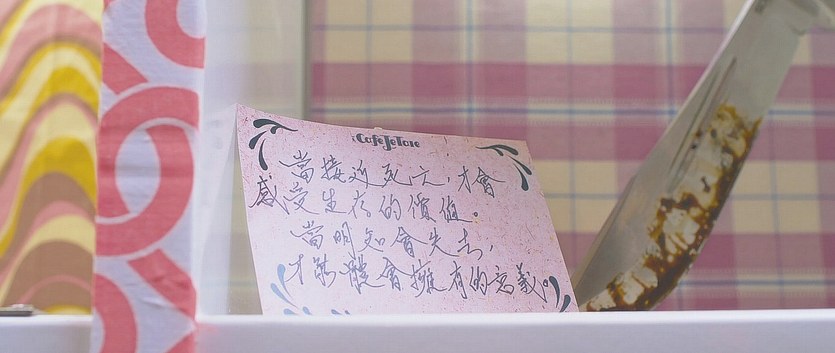 CafeJeTaie
當接近死亡，才會
感受生存的價值。
當明知會失去，
才能體會擁有的意義。